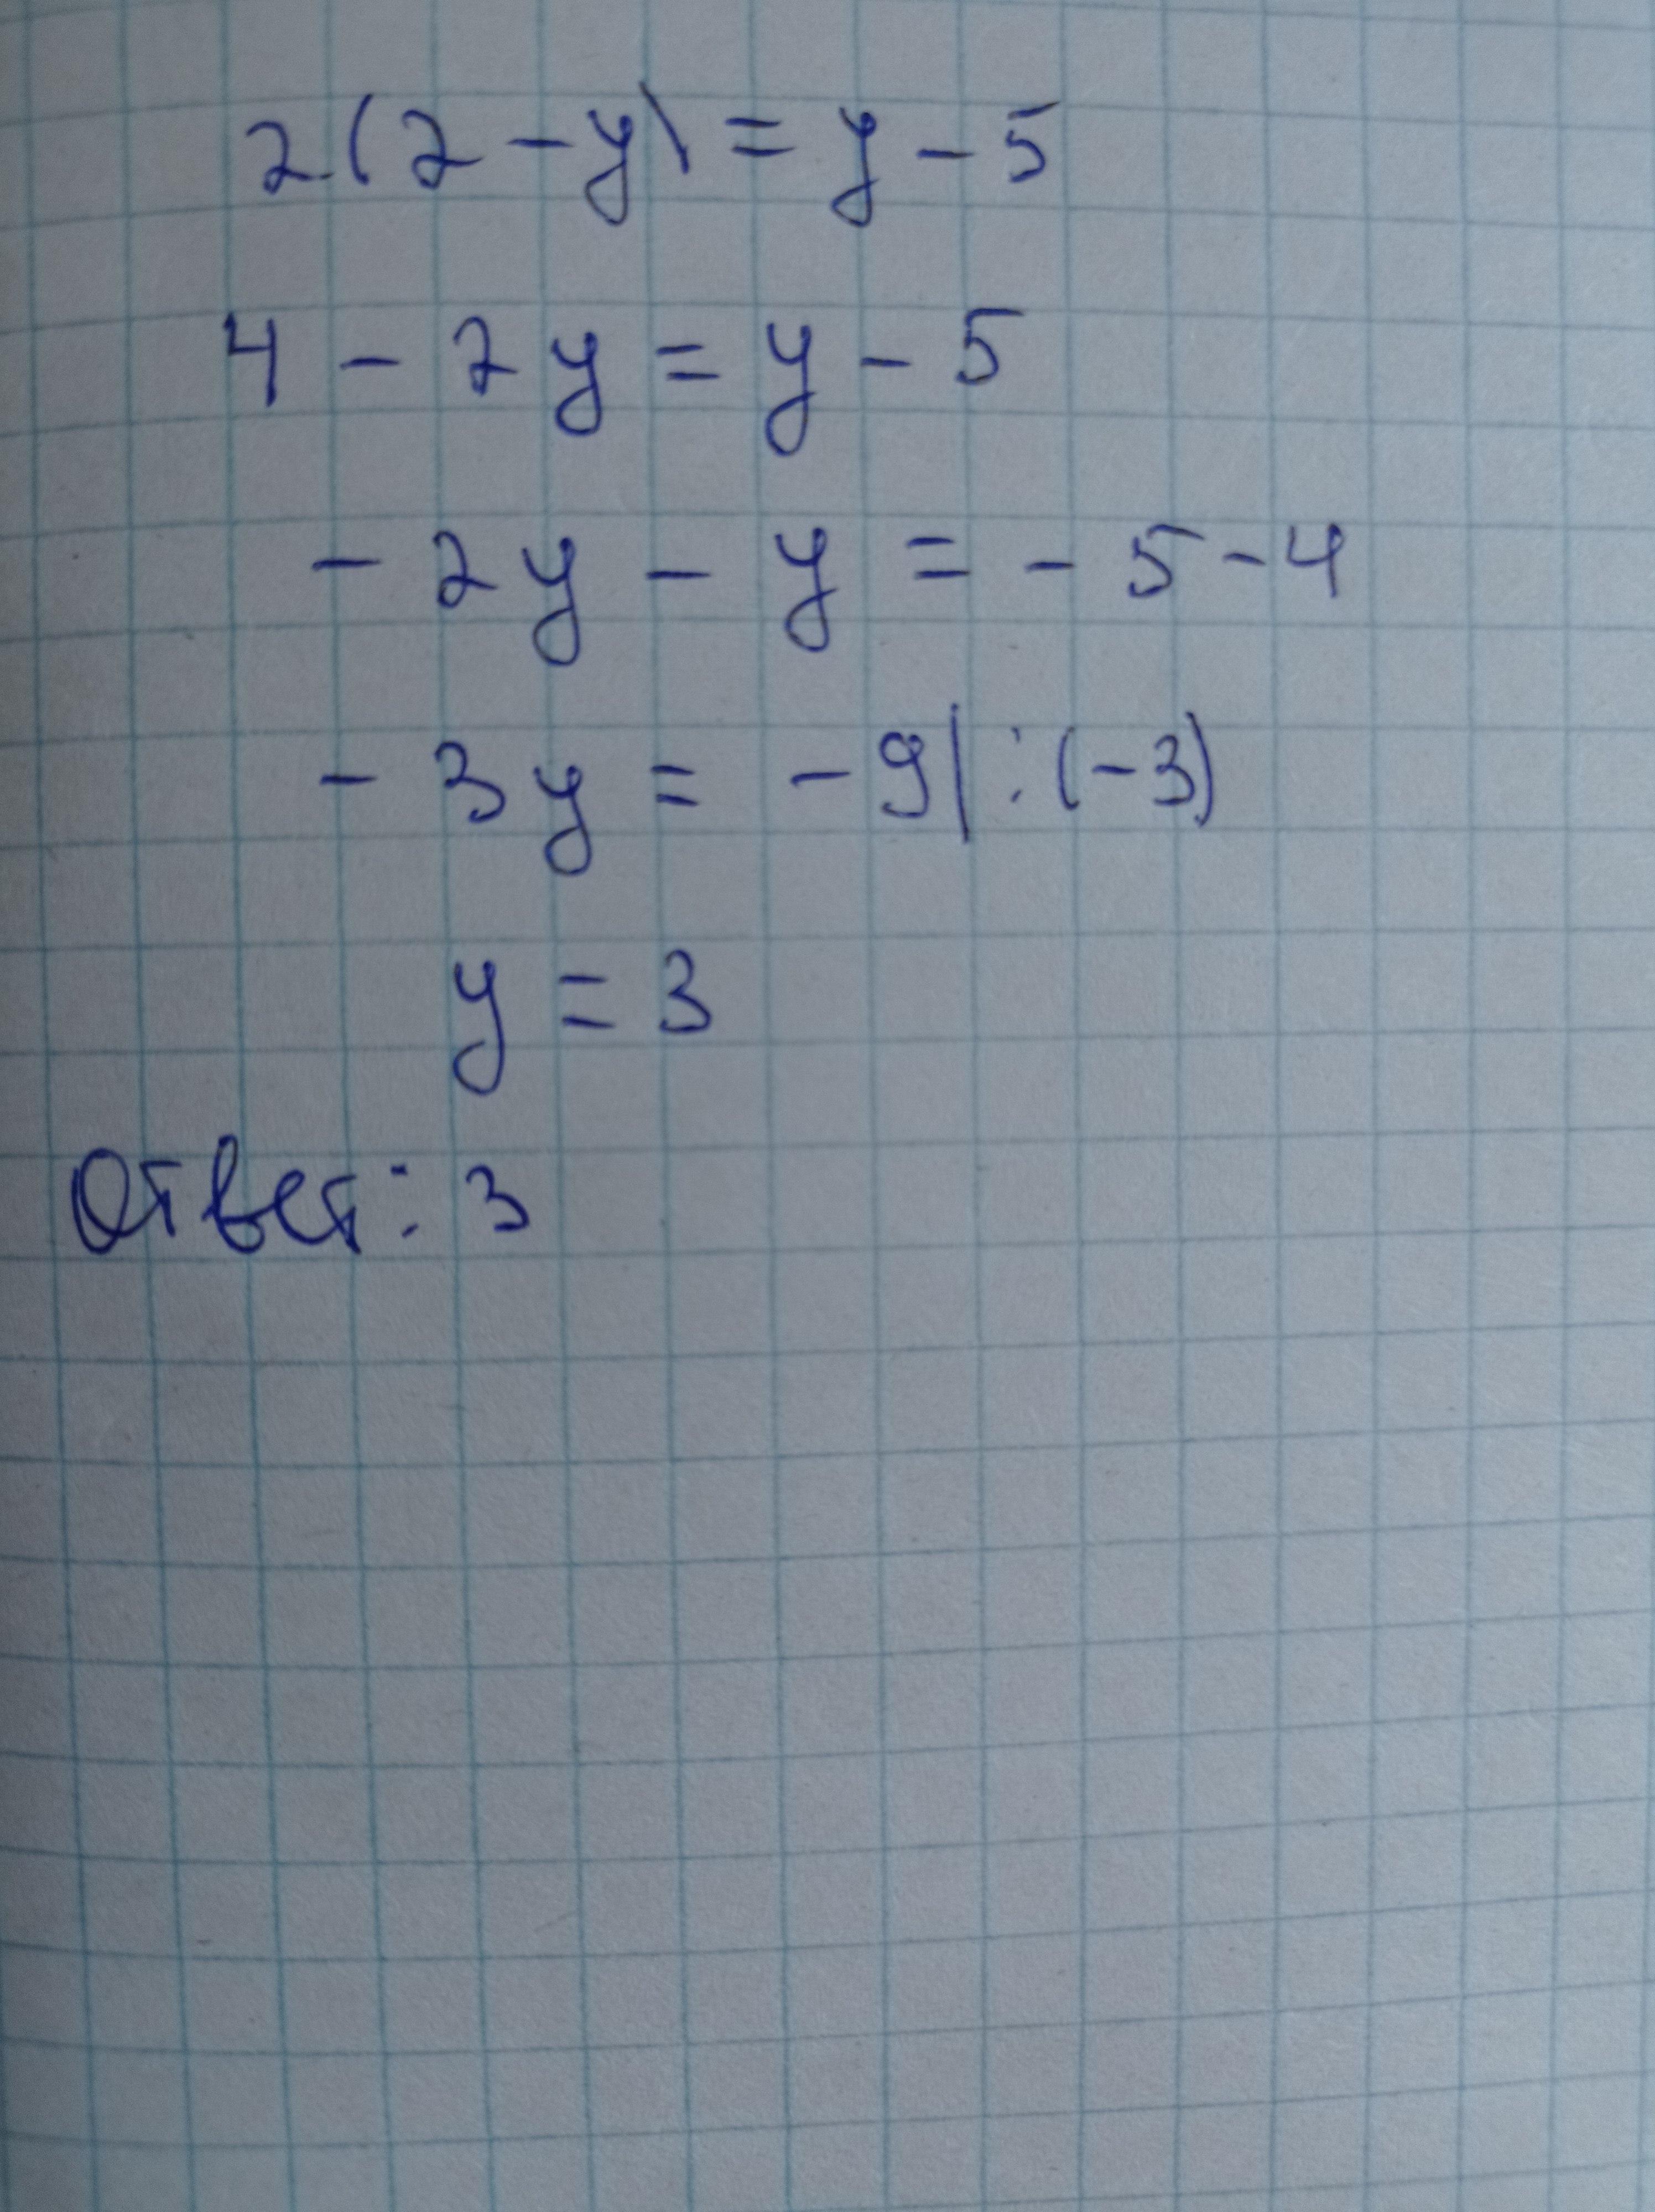 2(2-y)=y-5
4-2y=y-5
-2y-y=-5-4
-3y=-9|:(-3)
y=3
Ответ: 3